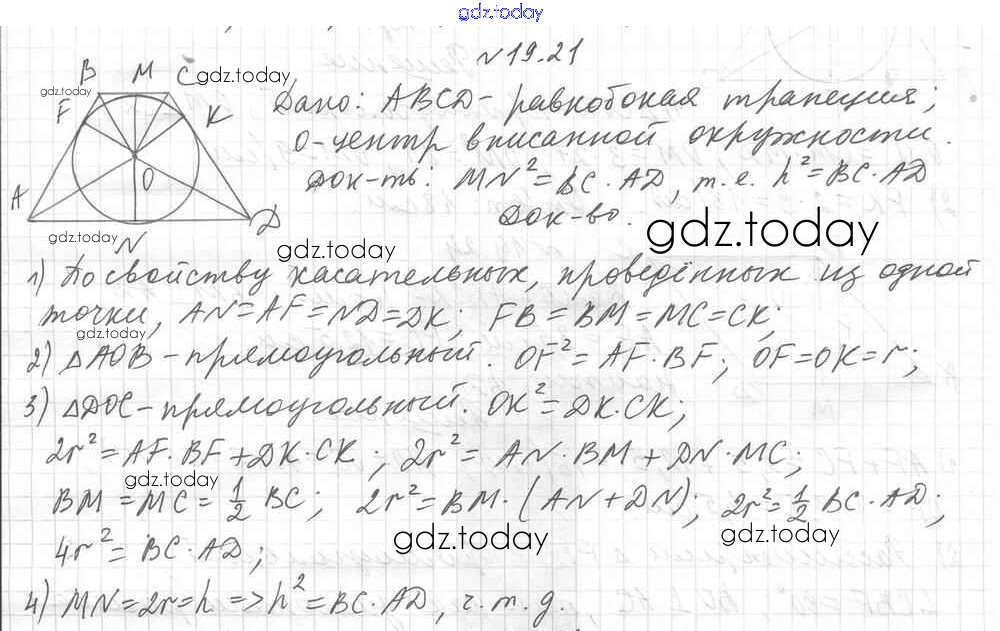 gdz.today
№19.21
B M C gdz.today
gdz.today
F K
Дано: ABCD - равнобокая трапеция;
O - центр вписанной окружности.
O
Док-ть: MN² = BC · AD, т.е. h² = BC · AD
A D
Док-во.
gdz.today
N
gdz.today
gdz.today
1) По свойству касательных, проведённых из одной
точки, AN = AF = ND = DK; FB = BM = MC = CK;
gdz.today
2) △AOB - прямоугольный. OF² = AF · BF; OF = OK = r;
3) △DOC - прямоугольный. OK² = DK · CK;
2r² = AF · BF + DK · CK; 2r² = AN · BM + DN · MC;
gdz.today
BM = MC = 1/2 BC; 2r² = BM · (AN + DN); 2r² = 1/2 BC · AD;
gdz.today
gdz.today
4r² = BC · AD;
4) MN = 2r = h => h² = BC · AD, ч.т.д.